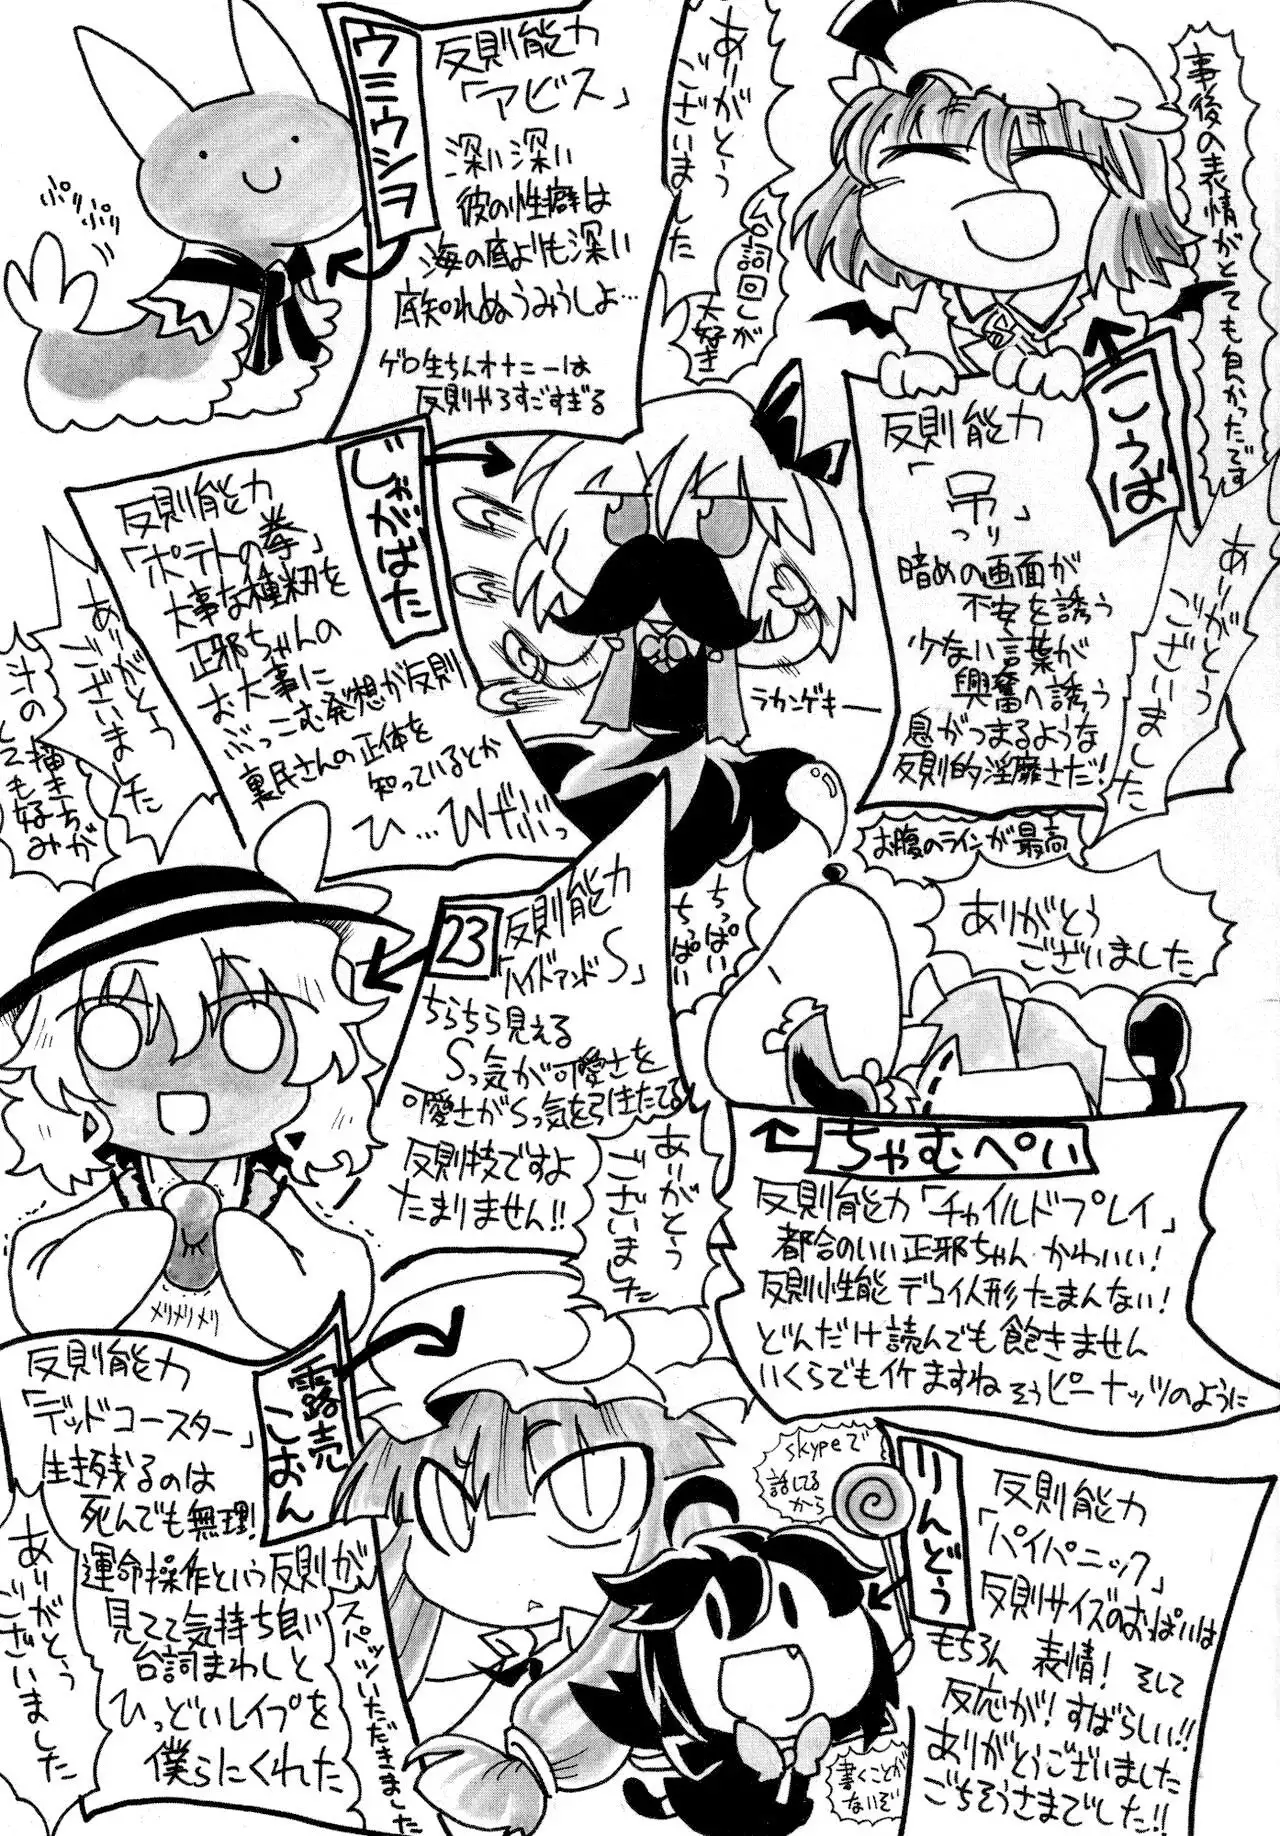 事後の表情がとても良かったです
こうば
反則能力
「吊」
つり
暗めの画面が
不安を誘う
少ない言葉が
興奮へ誘う
息がつまるような
反則的淫靡さだ!
ありがとう
ございました
ありがとう
ございました
台詞回しが
大好き
ウミウシヲ
反則能力
「アビス」
深い深い
彼の性癖は
海の底よりも深い
底知れぬうみうしよ…
ゲロ生ちんオナニーは
反則やろすごすぎる
ぷりぷり
じゃがばた
反則能力
「ポテトの拳」
大事な種籾を
正邪ちゃんの
お大事に
ぶっこむ発想が反則
裏民さんの正体を
知っているとか
ひ…ひげぶっ
ラカンゲキー
ありがとう
ございました
汁の描き方が
とても好み
お腹のラインが最高
ありがとう
ございました
ちっぱい
ちっぱい
23
反則能力
「ハイドアンドS」
ちらちら見える
Sっ気が可愛さを
可愛さがSっ気を引きたてる
反則技ですよ
たまりません!!
ありがとう
ございました
メリメリメリ
ちゃむぺい
反則能力「チャイルドプレイ」
都合のいい正邪ちゃんかわいい!
反則性能デコイ人形たまんない!
どんだけ読んでも飽きません
いくらでもイケますね そうピーナッツのように
露売
こおん
反則能力
「デッドコースター」
生き残るのは
死んでも無理!
運命操作という反則が
見てて気持ち良い
台詞まわしと
ひっどいレイプを
僕らにくれた
ありがとう
ございました
スパッツいただきました
りんどう
skypeで
話してる
から
書くことが
ないぞ
反則能力
「パイパニック」
反則サイズのおっぱいは
もちろん 表情! そして
反応が! すばらしい!!
ありがとうございました
ごちそうさまでした!!